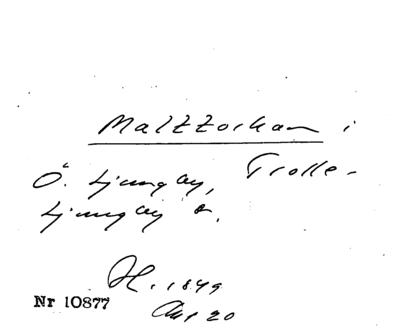 Maltzorkan i
Ö. Ljungby, Trolle-
Ljungby o.
H. 1849
Nr 10877
20